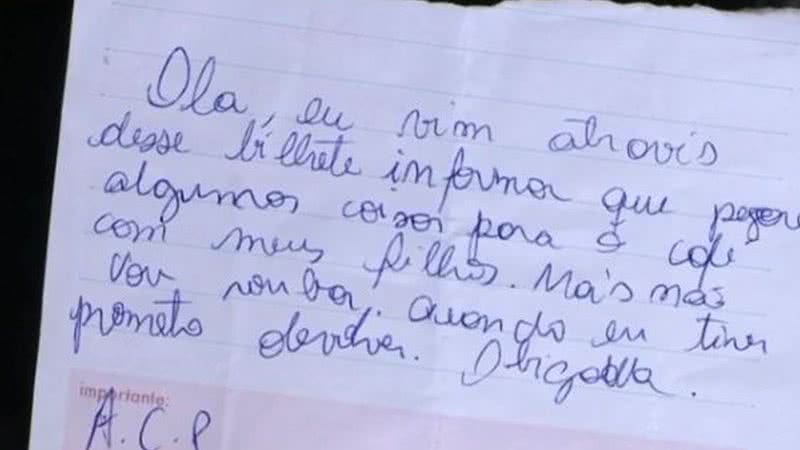 Ola, eu vim através
desse bilhete informar que pegare
algumas coisas para o café
com meus filhos. Mas não
vou roubar. Quando eu tiver
prometo devolver. Obrigada.
importante:
A.C.P